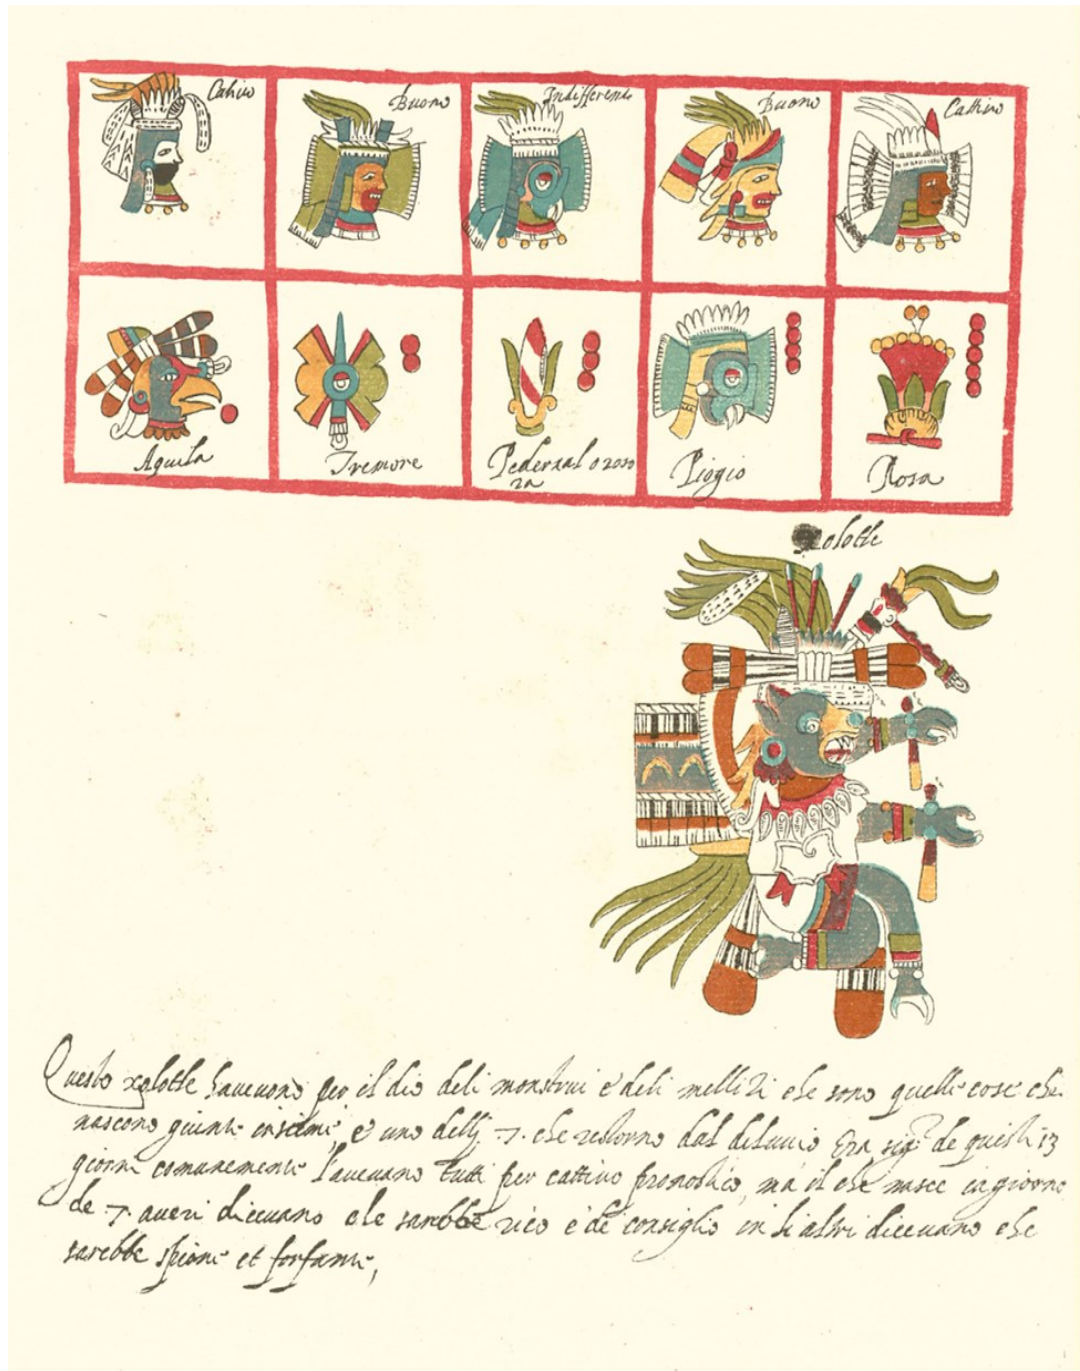 Cativo Buono Indifferente Buono Cattivo
Aquila Tremore Pedernal o rozo Piogia Rosa
za
Xolotle
Questo xolotle havevono per il dio deli monstrui e deli mellizi che sono quelle cose che
nascono giunte insieme, e uno delli .7. che restorno dal deluvio Era sig.r de questi 13
giorni comunemente l'avevano tutti per cattivo pronostico, ma il che nasce in giorno
de .7. dicevano che sarebbe rico e de consiglio in li altri dicevano che
sarebbe spione et forfante,